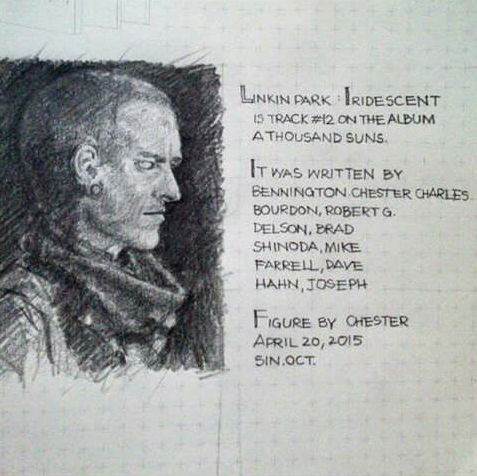 LINKIN PARK : IRIDESCENT
IS TRACK #12 ON THE ALBUM
A THOUSAND SUNS.
IT WAS WRITTEN BY
BENNINGTON. CHESTER CHARLES.
BOURDON, ROBERT G.
DELSON, BRAD
SHINODA, MIKE
FARRELL, DAVE
HAHN, JOSEPH
FIGURE BY CHESTER
APRIL 20, 2015
SIN.OCT.